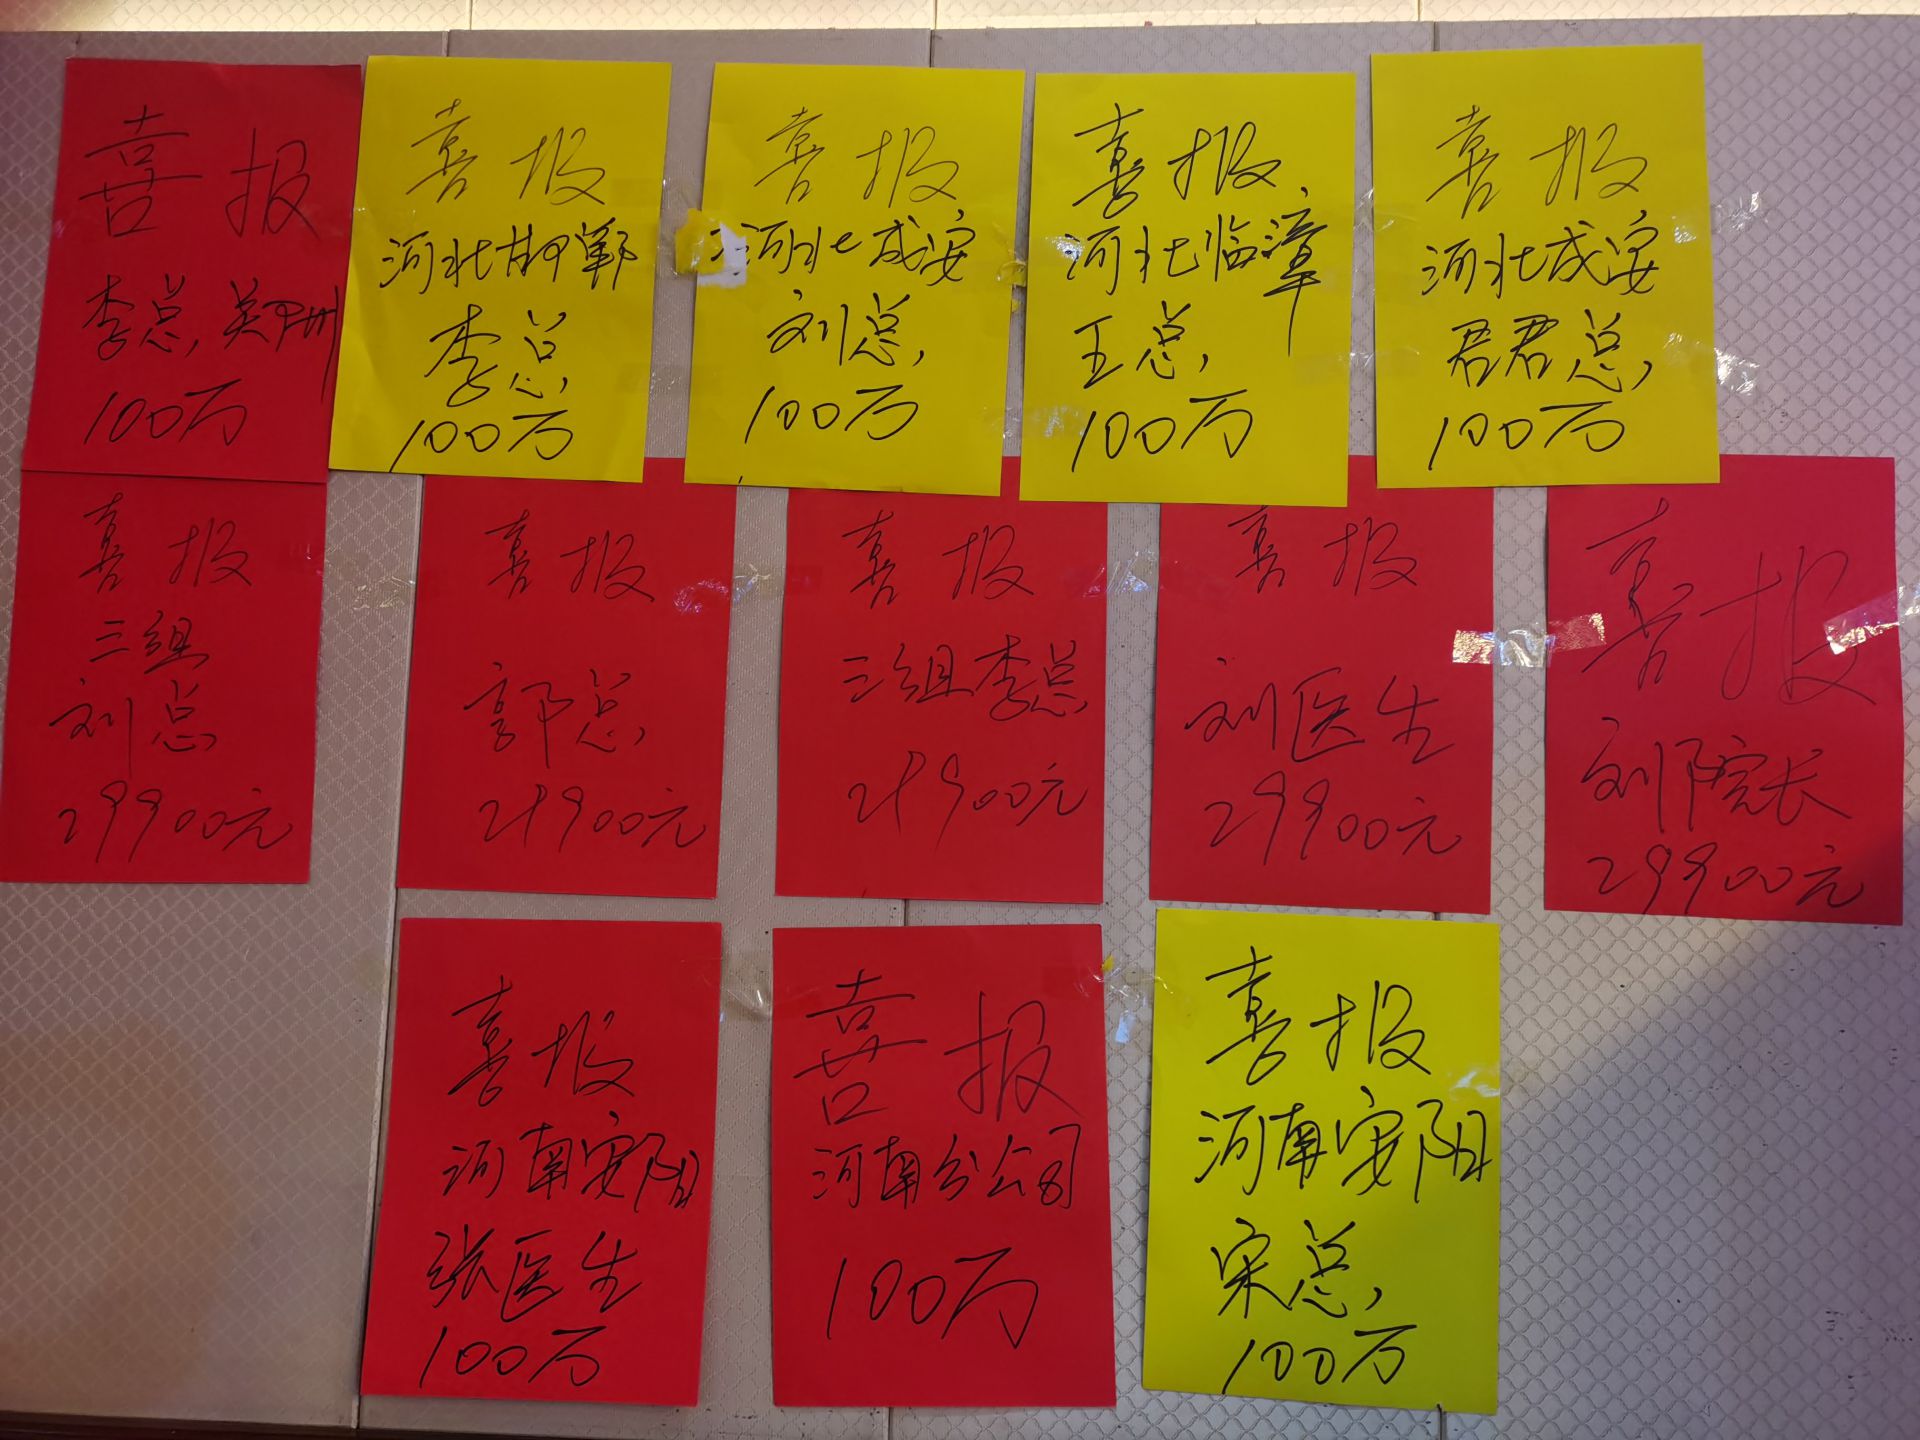 喜报
李总,郑州
100万
喜报
河北邯郸
李总,
100万
喜报
河北成安
刘总,
100万
喜报
河北临漳
王总,
100万
喜报
河北成安
君君总,
100万
喜报
三组
刘总,
29900元
喜报
郭总,
29900元
喜报
三组李总,
29900元
喜报
刘医生
29900元
喜报
刘院长
29900元
喜报
河南安阳
张医生
100万
喜报
河南分公司
100万
喜报
河南安阳
宋总,
100万